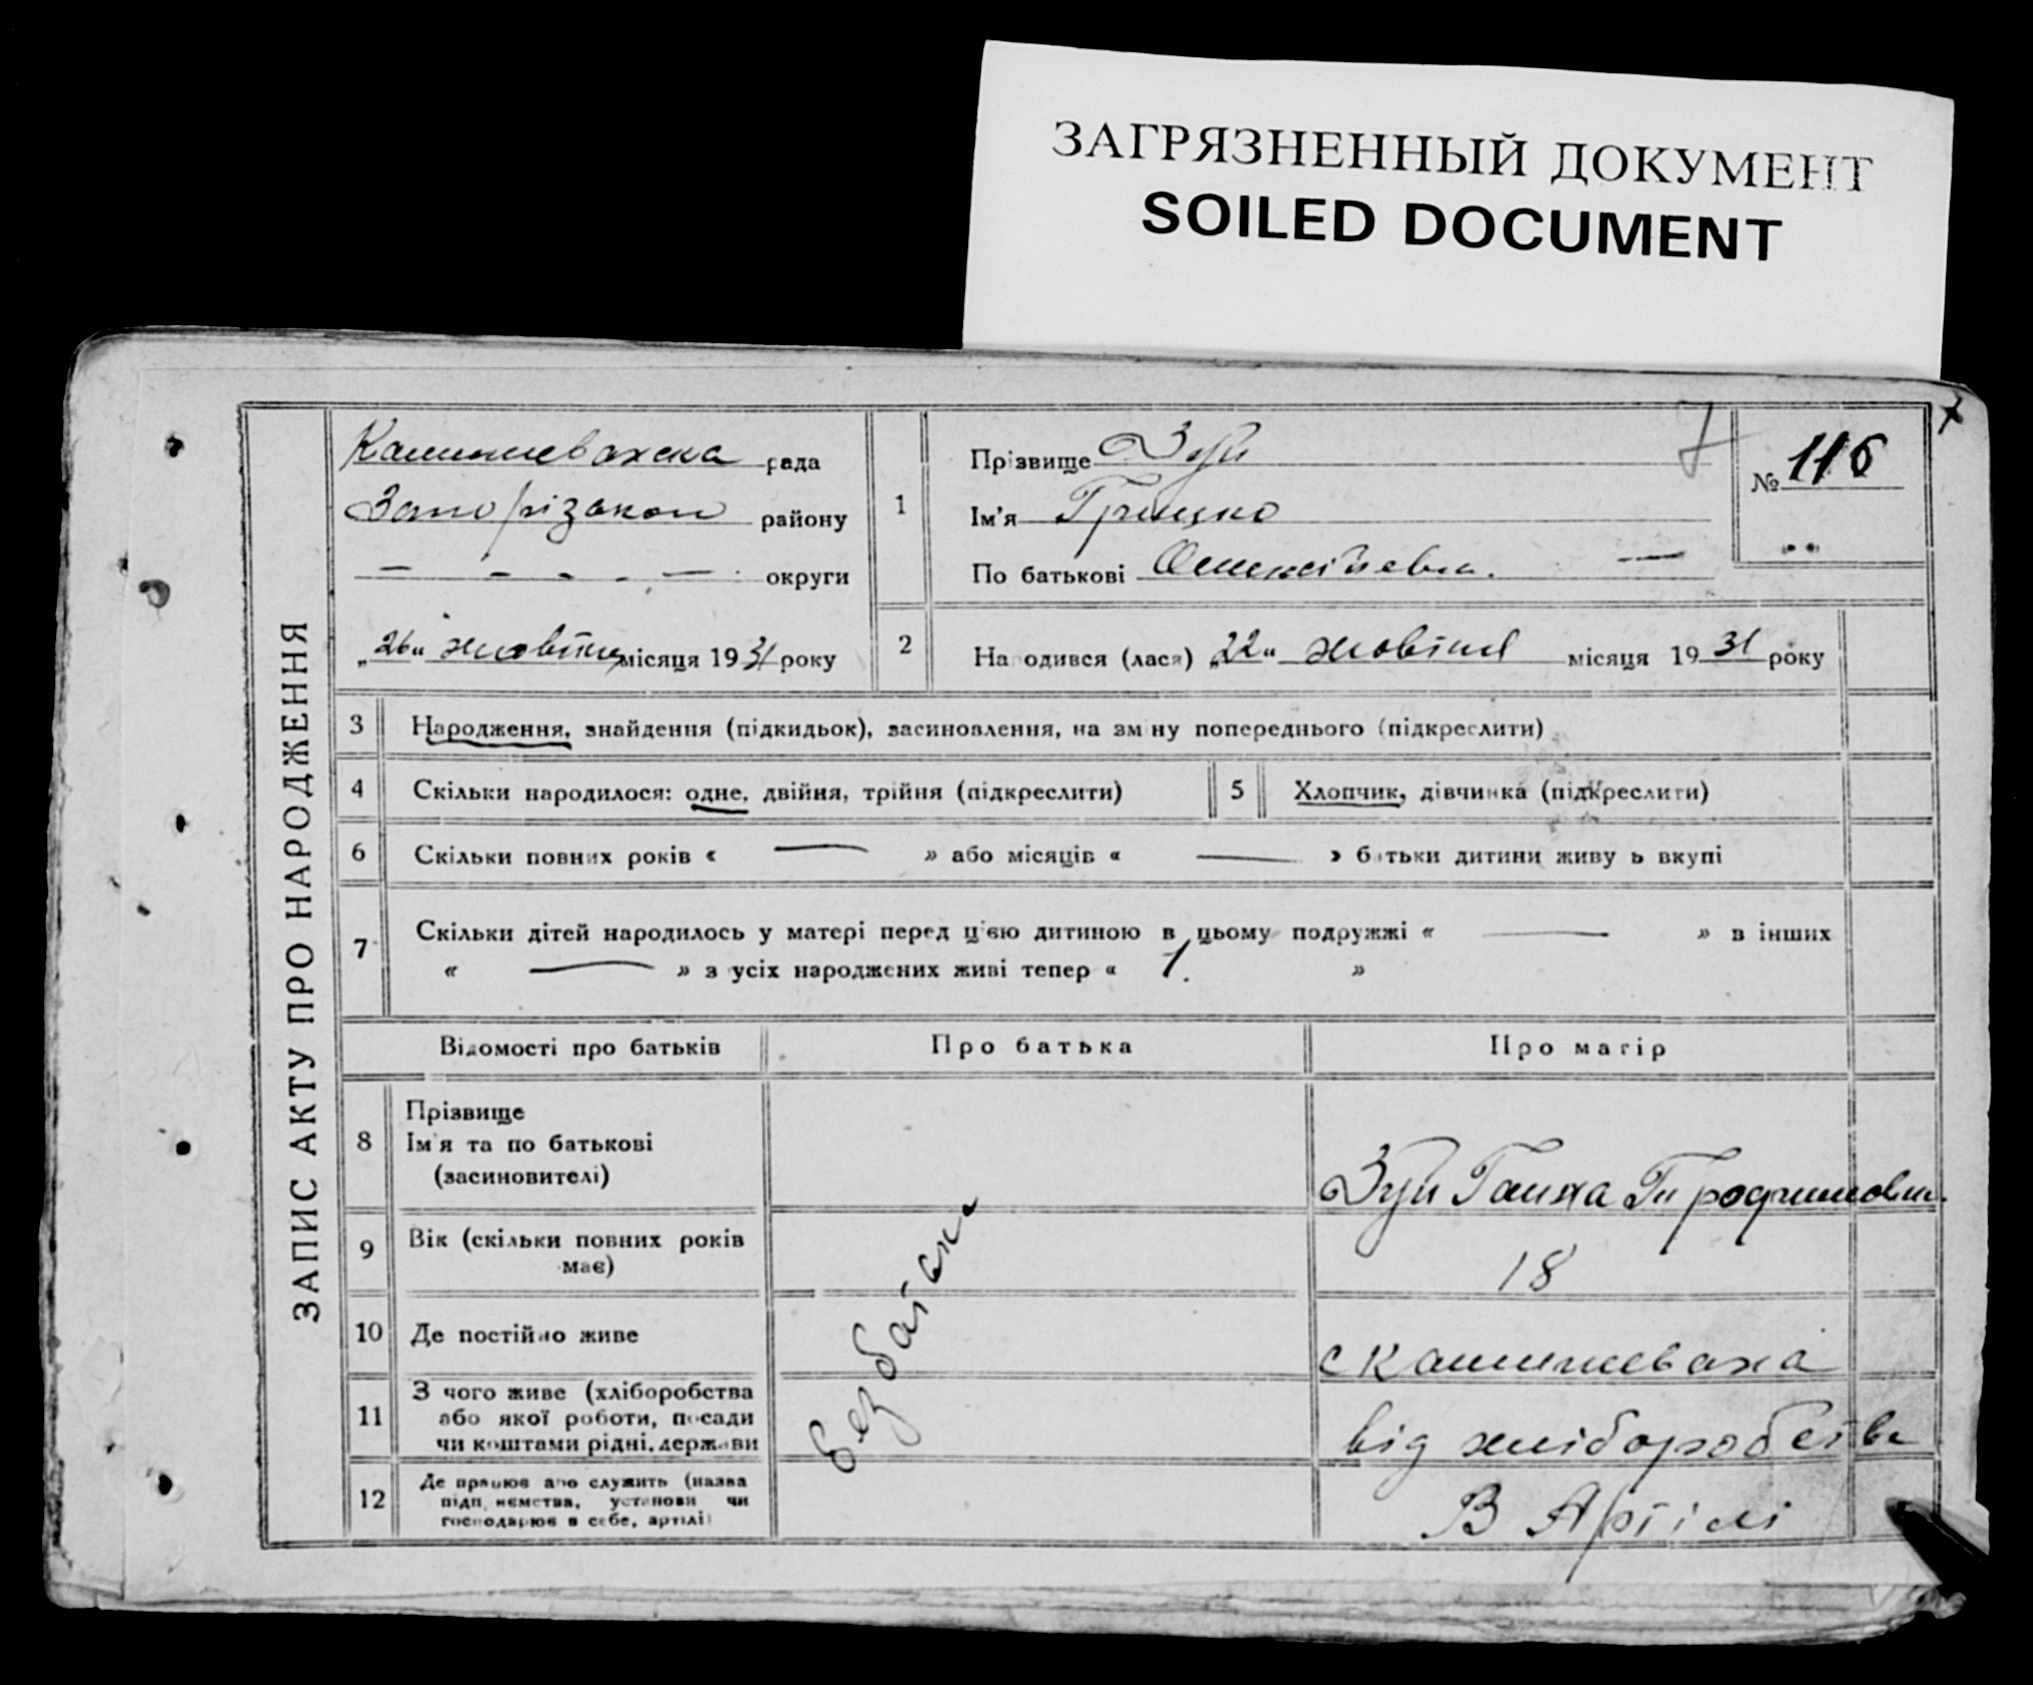 ЗАГРЯЗНЕННЫЙ ДОКУМЕНТ
SOILED DOCUMENT
ЗАПИС АКТУ ПРО НАРОДЖЕННЯ
Камишеваська рада
району
округи
„26“ жовтня місяця 1931 року
1
Прізвище Зуй
Ім'я Грицко
По батькові Олексійевич.
7
№ 116
2
Народився (лася) „22“ жовтня місяця 1931 року
3 Народження, знайдення (підкидьок), засиновлення, на зміну попереднього (підкреслити)
4 Скільки народилося: одне, двійня, трійня (підкреслити)
5 Хлопчик, дівчинка (підкреслити)
6 Скільки повних років « — » або місяців « — » батьки дитини живуть вкупі
7 Скільки дітей народилось у матері перед цією дитиною в цьому подружжі « — » в інших
« — » з усіх народжених живі тепер « 1. »
Відомості про батьків Про батька Про матір
8 Прізвище
Ім'я та по батькові
(засиновителі)
Зуй Ганна
9 Вік (скільки повних років
має)
18
10 Де постійно живе
с Камишеваха
11 З чого живе (хліборобства
або якої роботи, посади
чи коштами рідні, держави
від хліборобства
12 Де працює або служить (назва
підприємства, установи чи
господарює в себе, артілі)
В Артілі
без батька